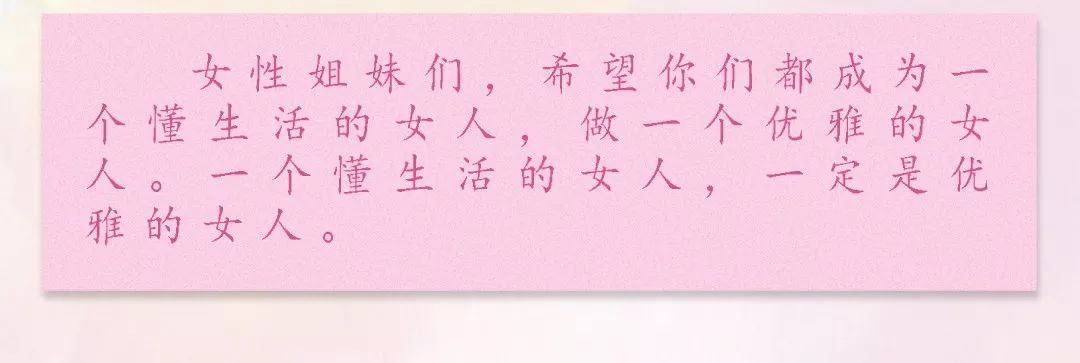 女性姐妹们，希望你们都成为一
个懂生活的女人，做一个优雅的女
人。一个懂生活的女人，一定是优
雅的女人。